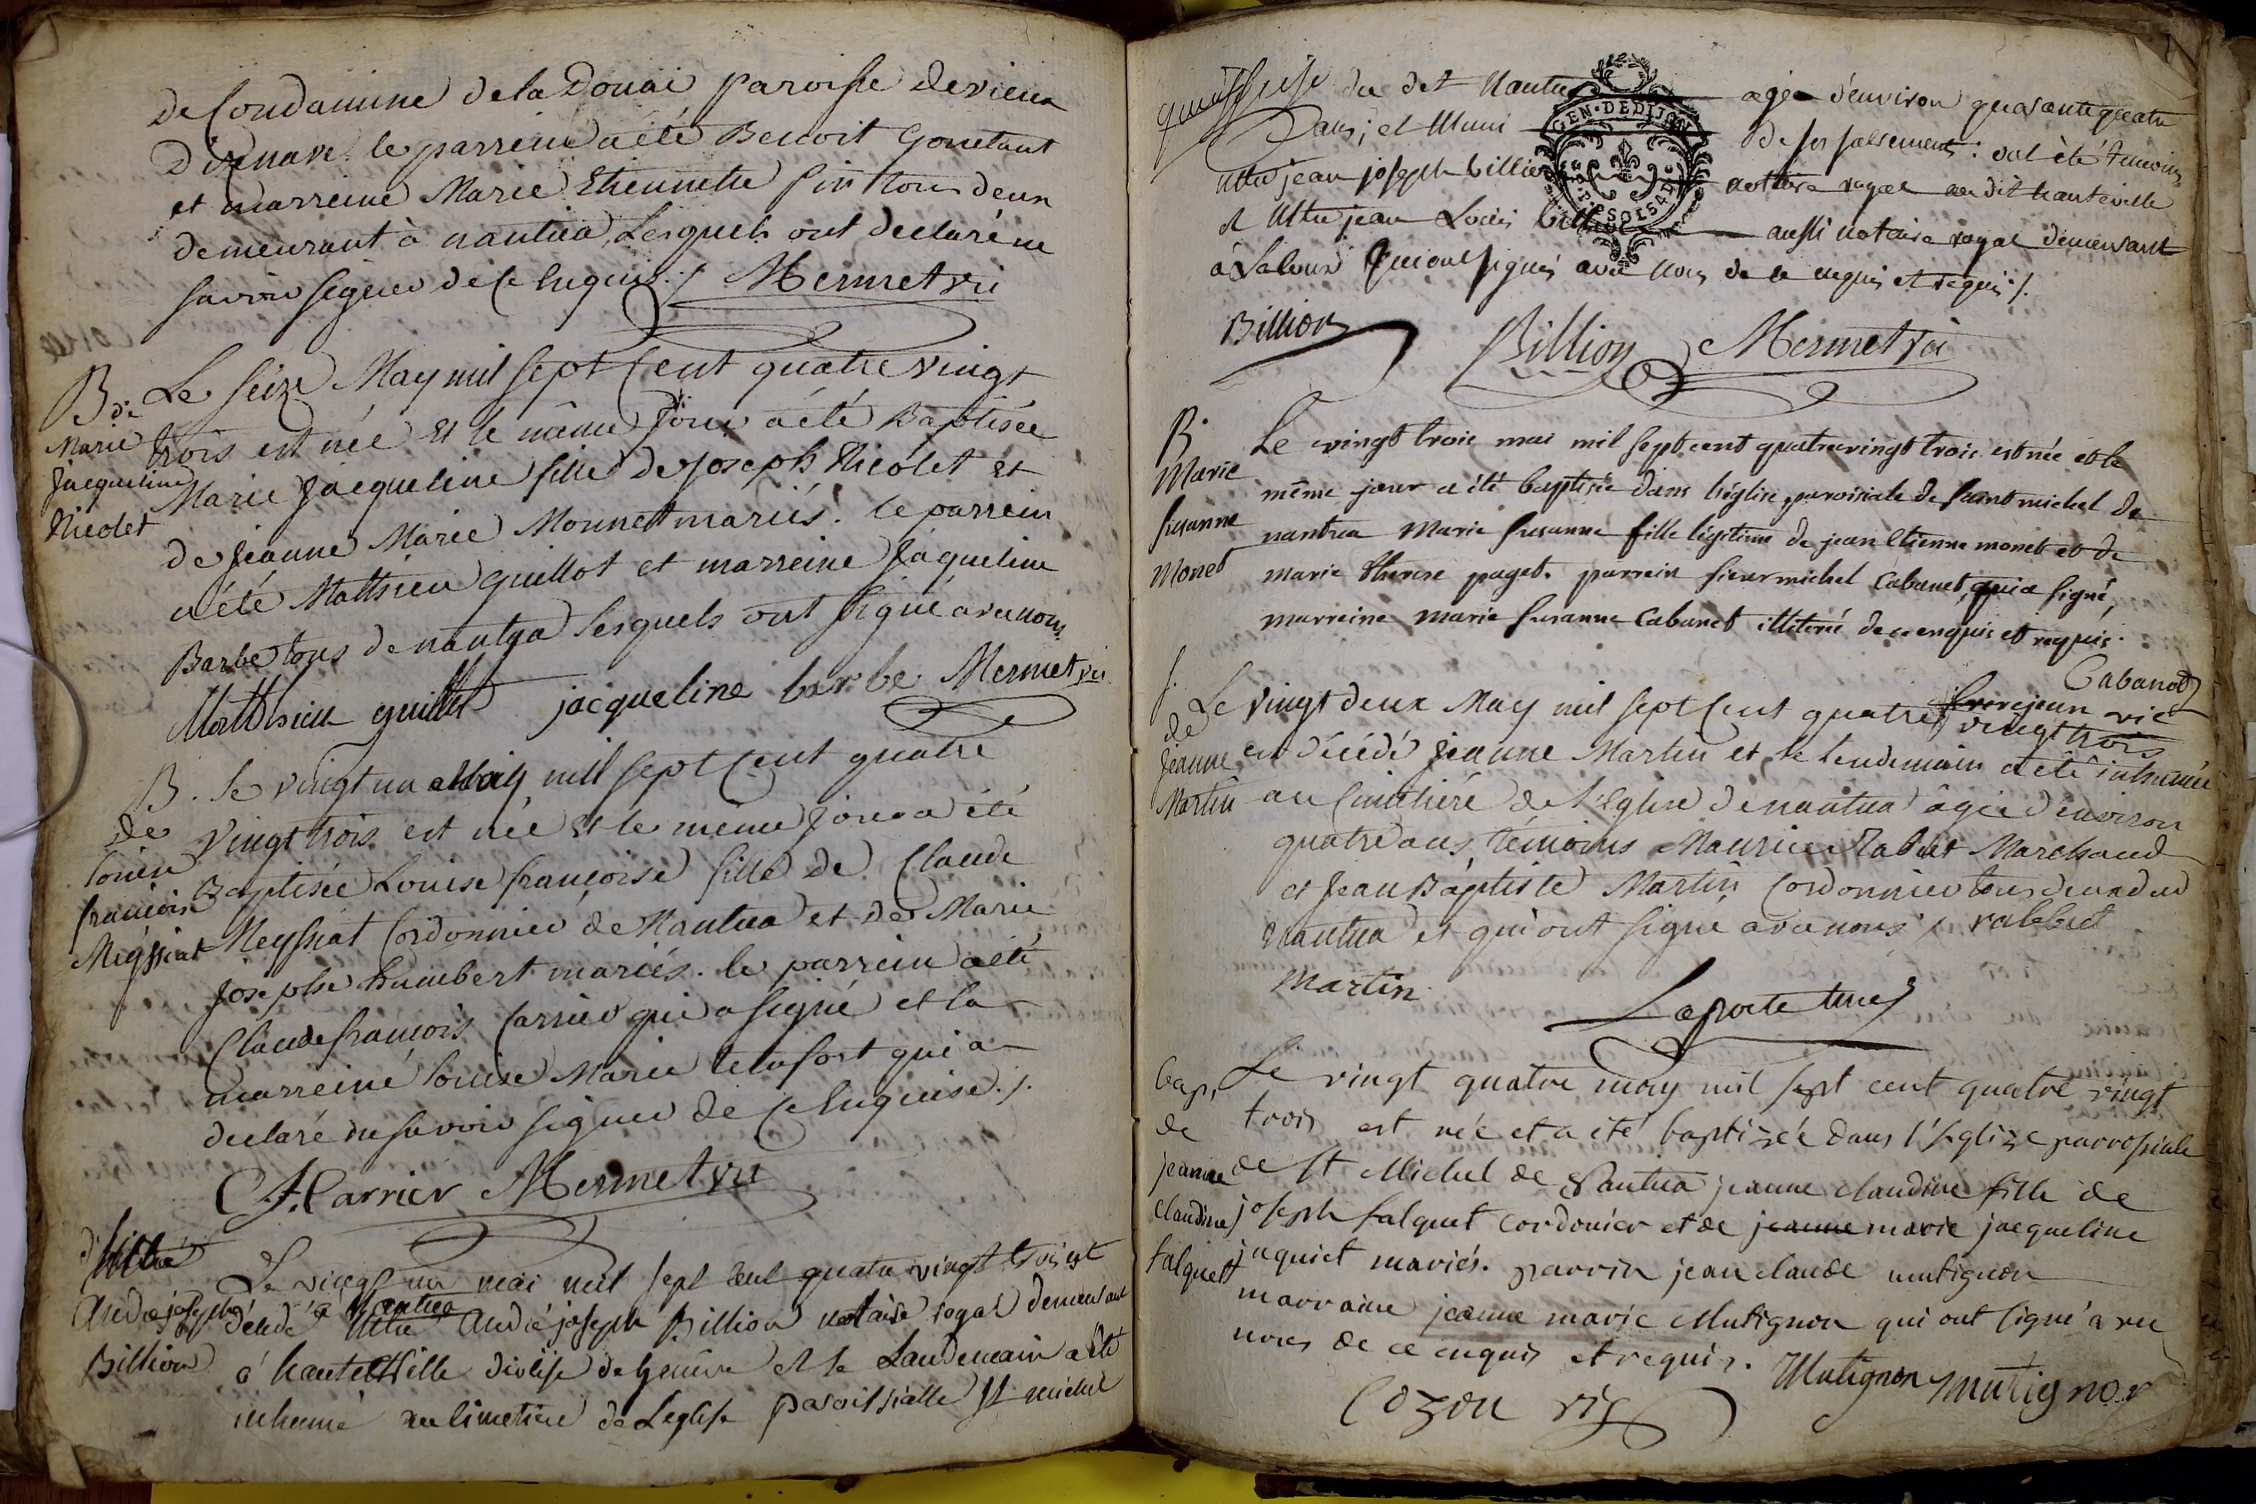 de Condamine de la Douai paroisse de vieux
D'izenave. le parrein a été Benoit Gonetant
et marreine Marie Etiennette tous deux
demeurant à nantua, Lesquels ont declaré ne
savoir signer de ce Enquis ./. Mermet vic
B de
Marie
Jacqueline
Nicolet
Le seize May mil sept Cent quatre vingt
trois est née et le même jour a été Baptisée
Marie Jacqueline fille de Joseph Nicolet et
de Jeanne Marie Monnet mariés. le parrein
a été Matthieu Guillot et marreine Jaqueline
Barbe tous de nantua lesquels ont signé avec nous.
Matthieu guillot jacqueline barbe Mermet vic
B.
de
Louise
francoise
Meyssiat
Le vingt un May mil sept Cent quatre
vingt trois est née et le meme jour a été
Baptisée Louise françoise fille de Claude
Meyssiat Cordonnier de Nantua et de Marie
Josephe humbert mariés. le parrein a été
Claude françois Carrier qui a signé et la
marreine Louise Marie qui a
declaré ne savoir signer de ce Enquise ./.
C f. Carrier Mermet vic
d'
André joseph
Billion
Le vingt un mai mil sept cent quatre vingt trois est
décédé à Nantua André joseph Billion notaire royal demeurant
à hauteville diocese de Geneve et le Landemain a été
inhumé au cimetiere de Leglise paroissialle St michel
du dit Nantua agé d'environ quarante quatre
ans; et Muni de ses sacrements: ont été temoins
jean joseph billion nottaire royal au dit hauteville
et jean Louis billion aussi notaire royal demeurant
à qui ont signés avec nous de ce enquis et requis ./.
GEN. DE DIJON
Billion Billion Mermet vic
B.
Marie
susanne
Monet
Le vingt trois mai mil sept cent quatrevingt trois est née et le
même jour a été baptisée dans l'église paroissiale de saint michel de
nantua Marie susanne fille légitime de jean Etienne monet et de
marie therese paget. parrein sieur michel Cabanet, qui a signé,
marreine marie susanne Cabanet illiteré de ce enquis et requis.
Cabanet
frerejean vic
f.
de
Jeanne
Martin
Le vingt deux May mil sept Cent quatre vingt trois
est décédé Jeanne Martin et le lendemain a été inhumée
au Cimitiére de l'Eglise de nantua âgée d'environ
quatre ans, témoins Maurice Rabbet Marchand
et Jean Baptiste Martin Cordonnier tous deux du
Nantua et qui ont signé avec nous ./. rabbet
Martin
Laporte
bap.
de
jeanne
claudine
falquet
Le vingt quatre may mil sept cent quatre vingt
trois est née et a été baptizée dans l'Eglize parrossiale
de St Michel de Nantua jeanne claudine fille de
joseph falquet cordonier et de jeanne marie jacqueline
jaquiet mariés. parrin jean claude mutignon
marraine jeanne marie Mutignon qui ont signé avec
nous de ce enquis et requis. Mutignon mutignon
Cozon vic